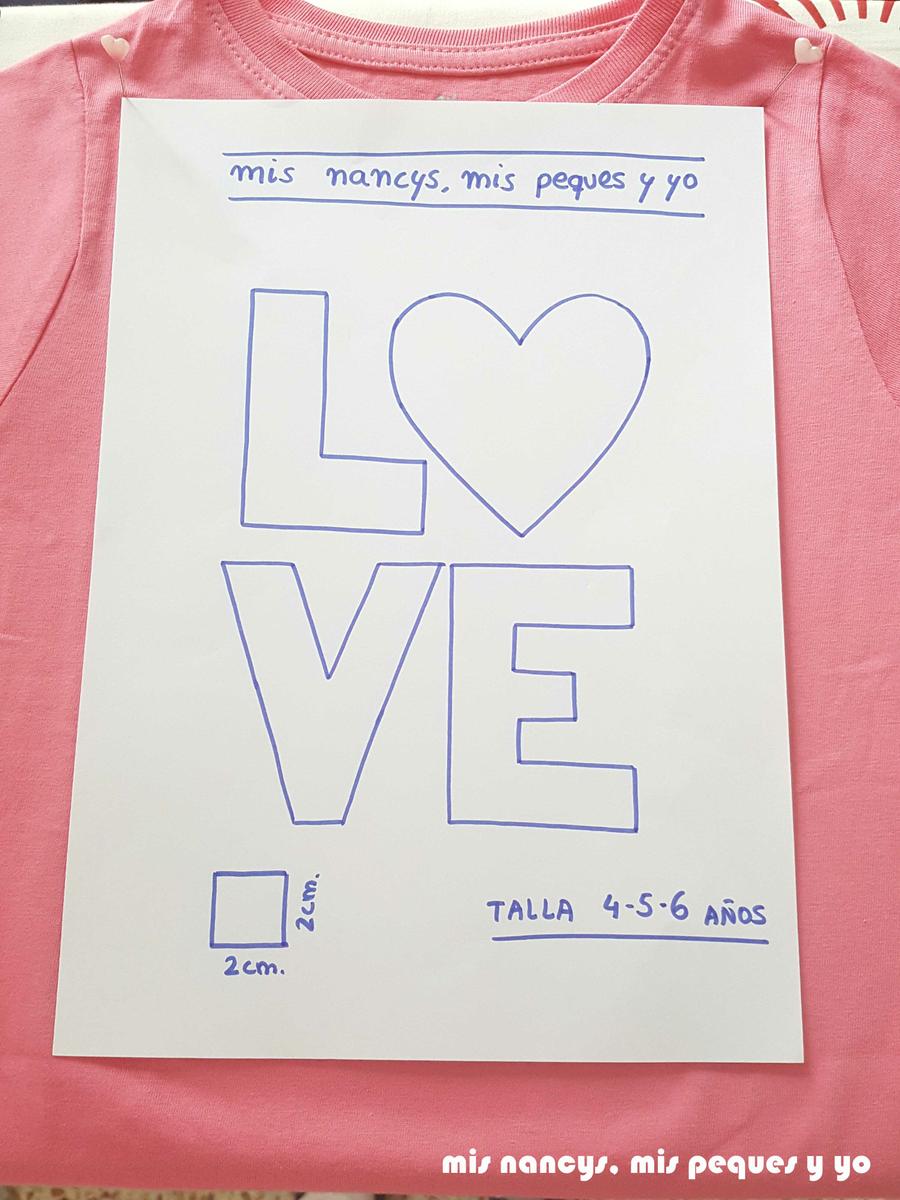 mis nancys, mis peques y yo
L
VE
2cm.
2cm.
TALLA 4-5-6 AÑOS
mis nancys, mis peques y yo